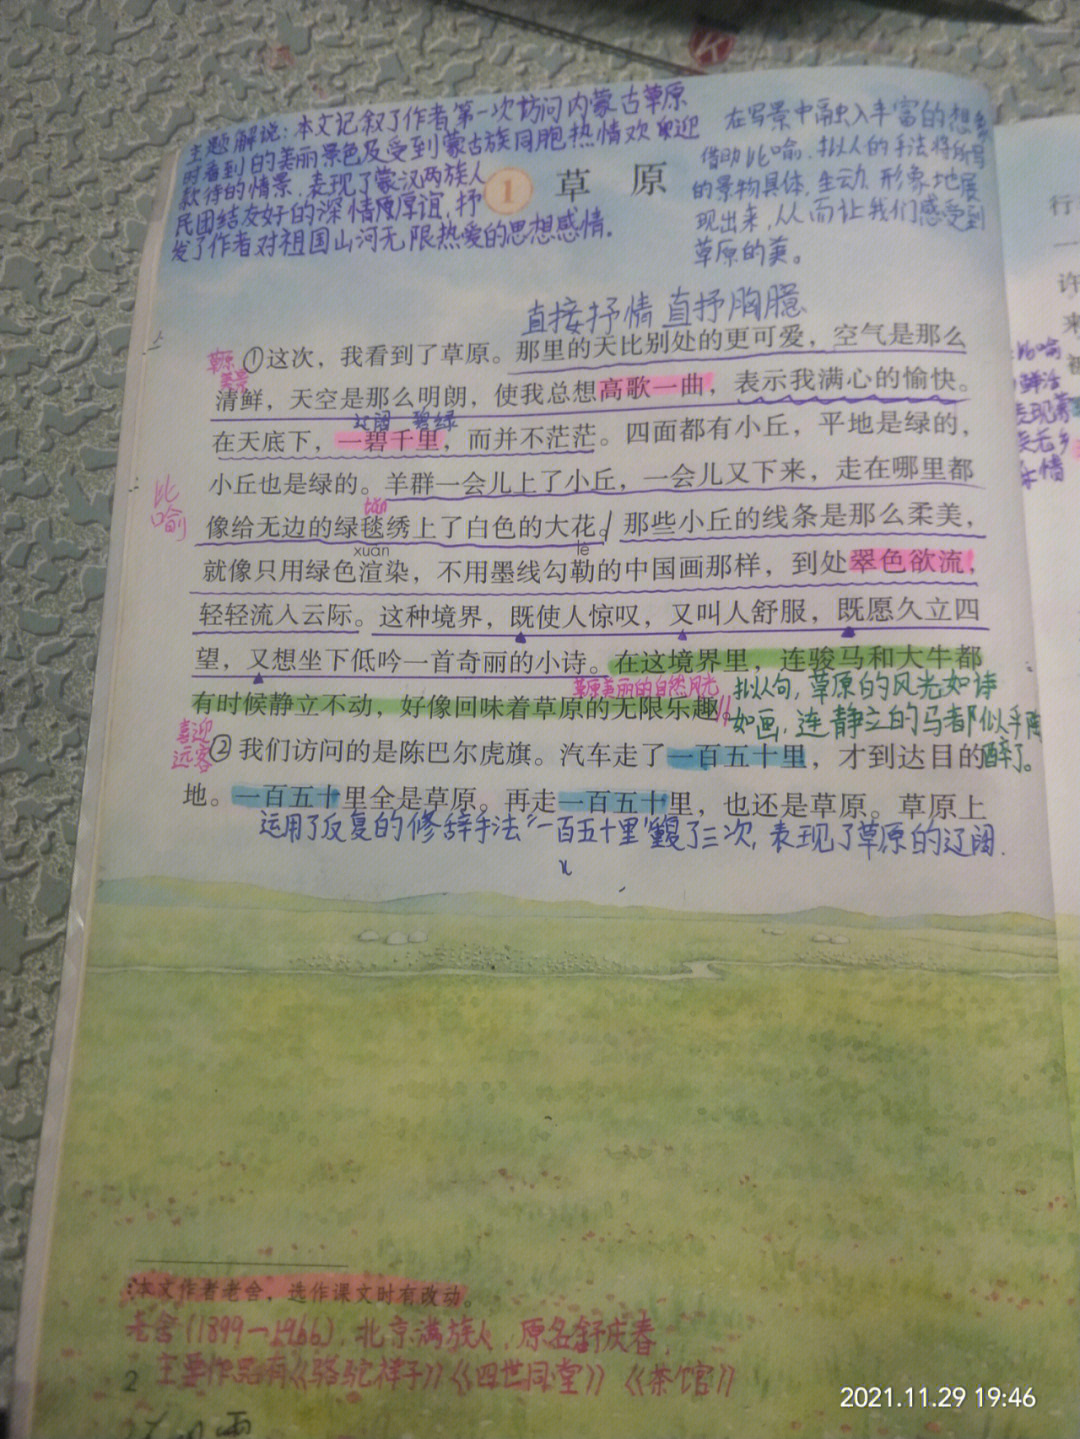 主题解说：本文记叙了作者第一次访问内蒙古草原
时看到的美丽景色及受到蒙古族同胞热情欢迎
款待的情景，表现了蒙汉两族人
民团结友好的深情厚谊，抒
发了作者对祖国山河无限热爱的思想感情.
1 草原
在写景中融入丰富的想象
借助比喻、拟人的手法将所写
的景物具体、生动、形象地展
现出来，从而让我们感受到
草原的美。
直接抒情 直抒胸臆
草原
美景
①这次，我看到了草原。那里的天比别处的更可爱，空气是那么
清鲜，天空是那么明朗，使我总想高歌一曲，表示我满心的愉快。
辽阔 碧绿
在天底下，一碧千里，而并不茫茫。四面都有小丘，平地是绿的，
小丘也是绿的。羊群一会儿上了小丘，一会儿又下来，走在哪里都
比喻
像给无边的绿毯绣上了白色的大花。那些小丘的线条是那么柔美，
xuàn lè
就像只用绿色渲染，不用墨线勾勒的中国画那样，到处翠色欲流，
轻轻流入云际。这种境界，既使人惊叹，又叫人舒服，既愿久立四
望，又想坐下低吟一首奇丽的小诗。在这境界里，连骏马和大牛都
草原美丽的自然风光
有时候静立不动，好像回味着草原的无限乐趣。
拟人句，草原的风光如诗
如画，连静立的马都似乎陶
醉了。
喜迎
远客
②我们访问的是陈巴尔虎旗。汽车走了一百五十里，才到达目的
地。一百五十里全是草原。再走一百五十里，也还是草原。草原上
运用了反复的修辞手法"一百五十里"重复了三次，表现了草原的辽阔.
本文作者老舍，选作课文时有改动。
老舍(1899—1966)，北京满族人，原名舒庆春，
主要作品有《骆驼祥子》《四世同堂》《茶馆》
2
行
一
许
来
比喻
2021.11.29 19:46